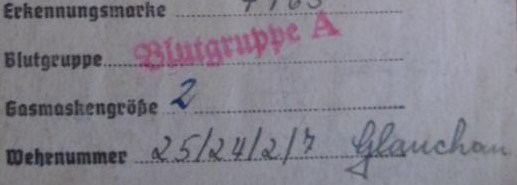 Erkennungsmarke
Blutgruppe Blutgruppe A
Gasmaskengröße 2
Wehrnummer 25/24/2/7 Glauchau